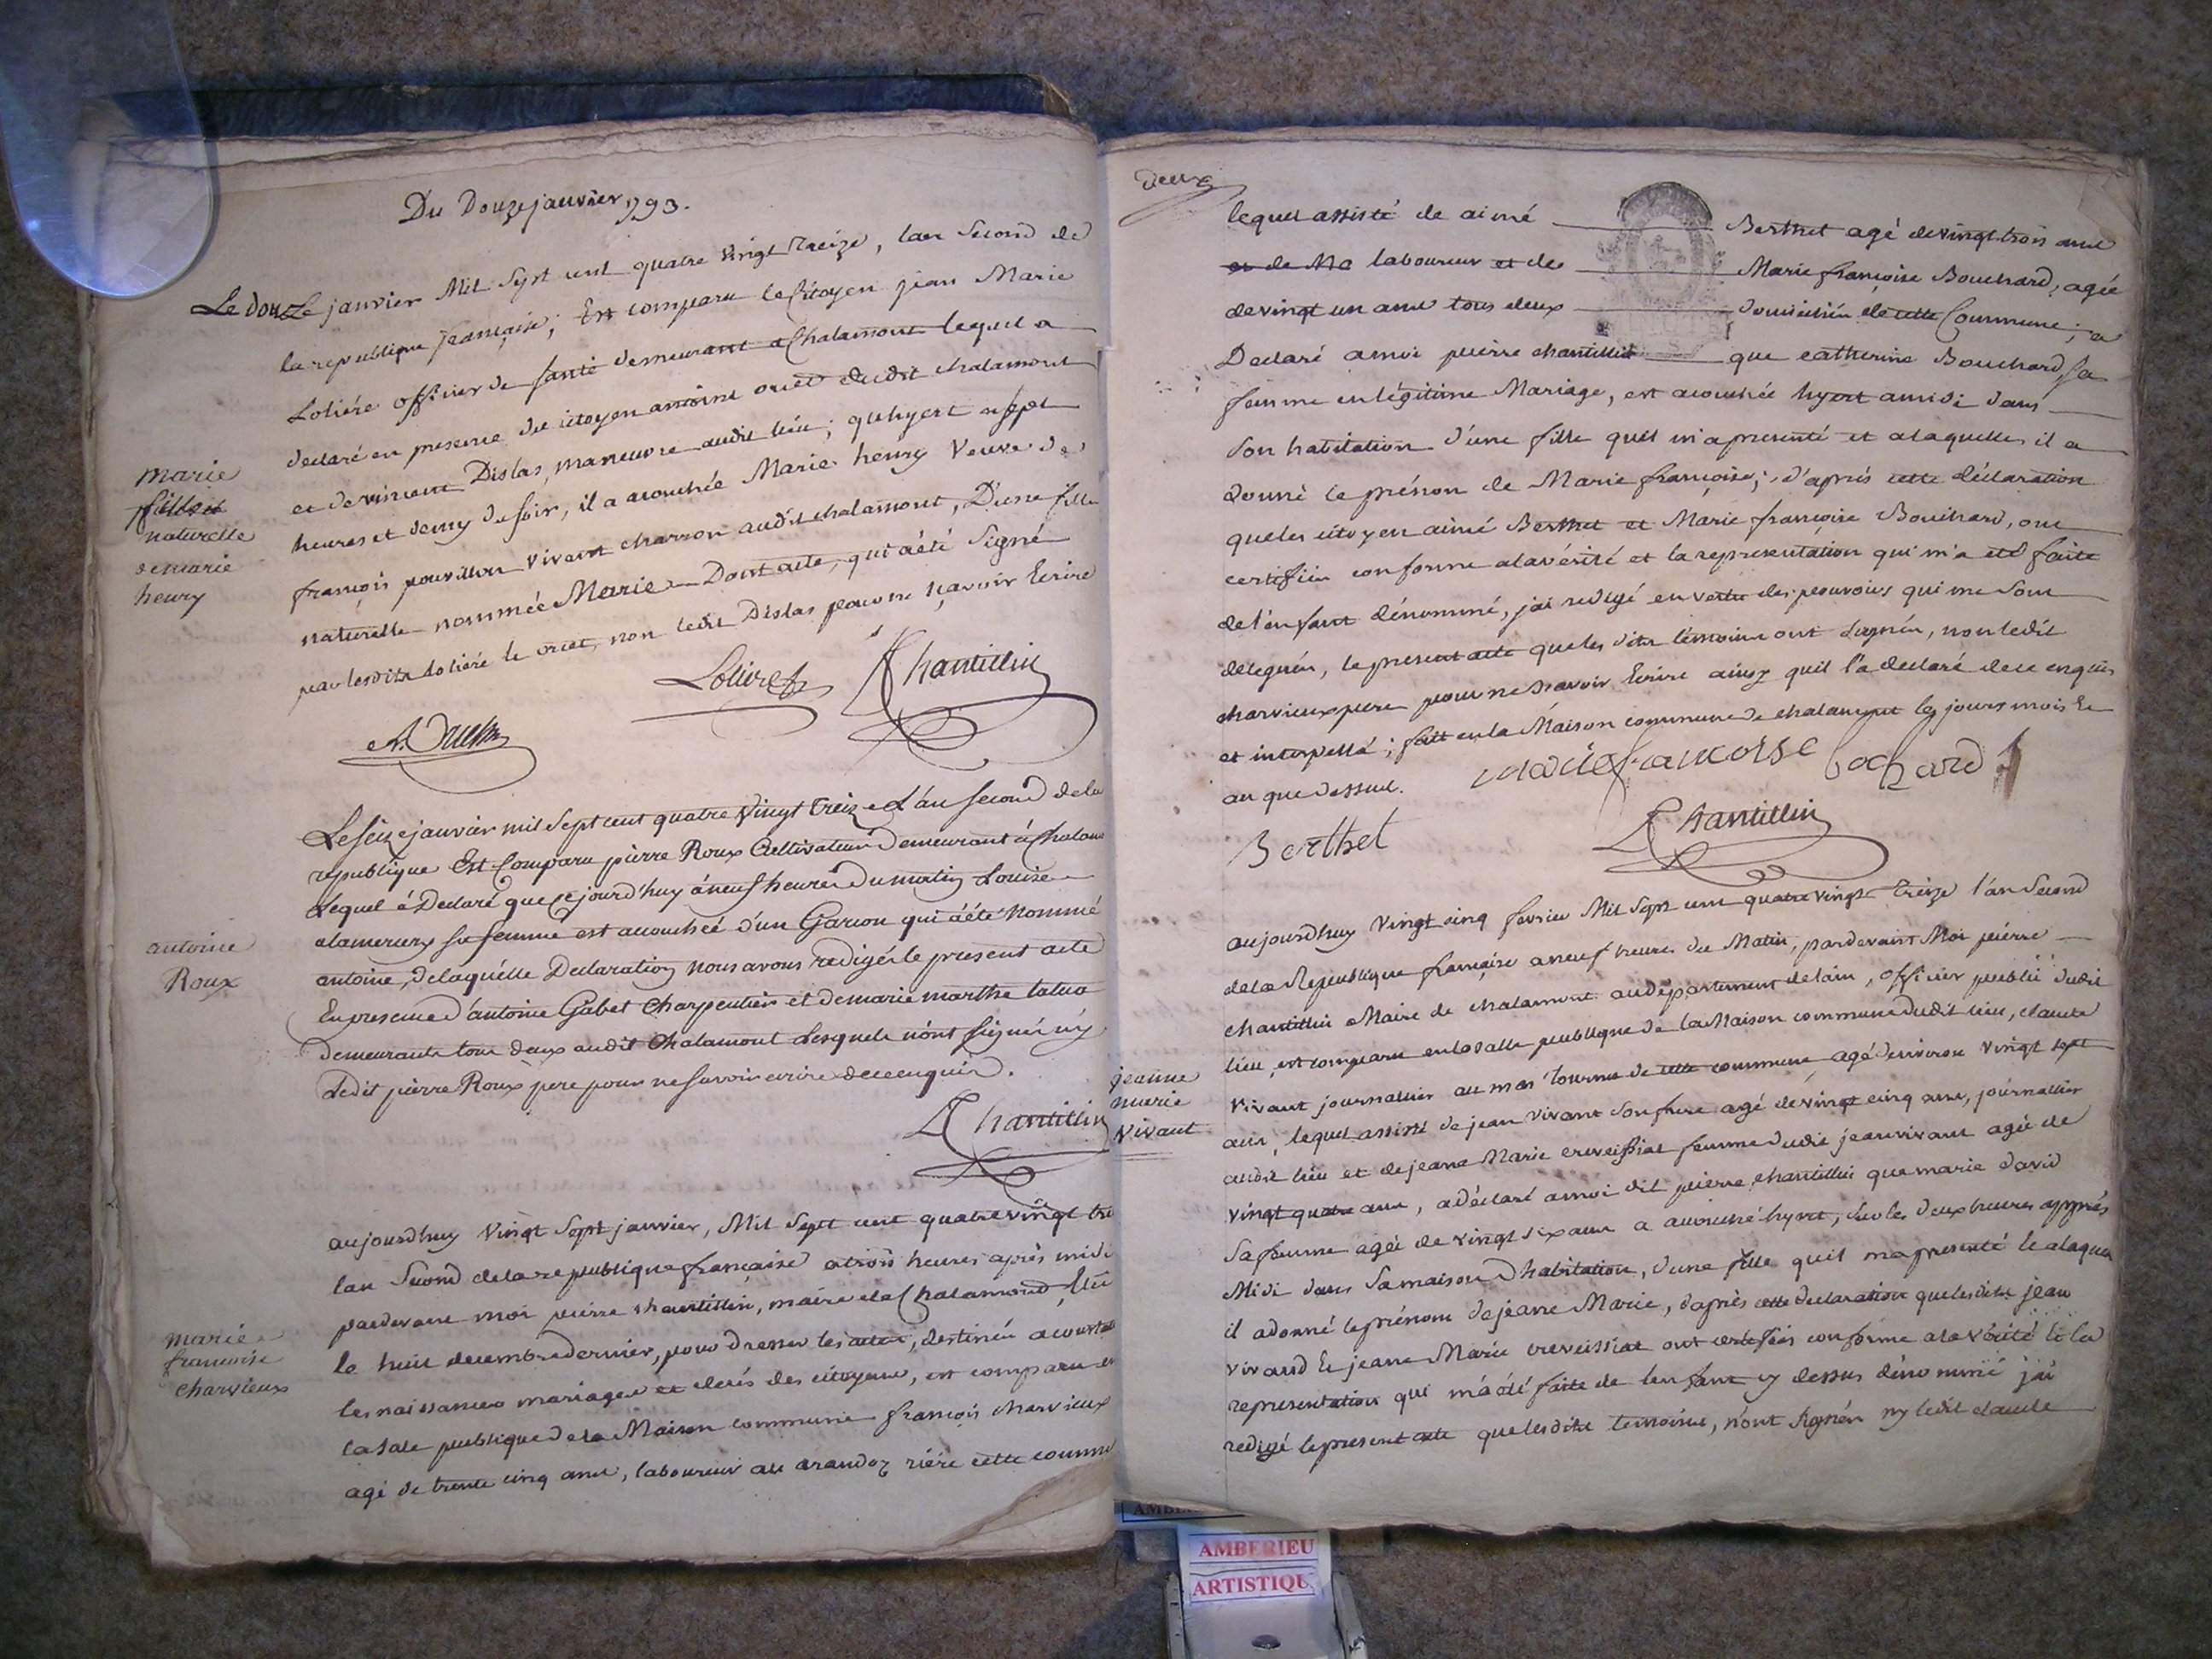 Du Douze janvier 1793.
Le douze janvier Mil Sept cent quatre vingt treize, lan Second de
la republique francaise; Est comparu le Citoyen jean Marie
Loliere officier de santé demeurant a Chalamont lequel a
declaré en presence du citoyen antoine oriet dudit chalamont
et de vincent Dislas, maneuvre audit lieu; quhyert a sept
heures et demy du soir, il a acouchée Marie henry Veuve de
françois pouvillon vivant charron audit chalamont, D'une fille
naturelle nommée Marie Dont acte, qui a été Signé
par lesdits Loliere le oriet, non ledit Dislas pour ne sçavoir Ecrire
marie
fille
naturelle
de marie
henry
Loliere
P Chantillin
Le seize janvier mil sept cent quatre Vingt treize L'an second de la
republique Est Comparu pierre Roux Cultivateur Demeurant à Chalam
Lequel à Declaré que cejourd'huy à neuf heures Du matin Louise
alamercery sa femme est accouchée d'un Garcon qui à été Nommé
antoine, De laquelle Declaration nous avons redigé le present acte
En presence D'antoine Gabet Charpentier et de marie marthe
Demeurants tous deux audit Chalamont Lesquels n'ont signé n'y
Ledit pierre Roux pere pour ne savoir ecrire de ce enquis.
antoine
Roux
P Chantillin
aujourdhuy Vingt Sept janvier, Mil Sept cent quatre vingt tre
lan Second de la republique française a trois heures après midi
pardevant moi pierre chantillin, maire de Chalamond, Elu
le huit decembre dernier, pour dresser les actes, destinés a constater
les naissances mariages et decés des citoyens, est comparu en
la Sale publique de la Maison commune françois charvieux
agé de trente cinq ans, laboureur au arandoz riére cette commu
marie
francoise
charvieux
deux
lequel assisté de aimé Berthet agé de vingt trois ans
et de Ma laboureur et de Marie françoise Bouchard, agée
de vingt un ans tous deux domiciliés de cette Commune; a
Declaré a moi pierre chantillin que catherine Bouchard, sa
femme en légitime Mariage, est acouchée hyert a midi dans
Son habitation d'une fille quil m'a presenté et a laquelle il a
donné le prénom de Marie françoise; d'après cette déclaration
que les citoyen aimé Berthet et Marie françoise Bouchard, ont
certifiés conforme a la vérité et la representation qui m'a été faite
de l'enfant dénommé, j'ai redigé en vertu des pouvoirs qui me sont
delegués, le present acte que les dits témoins ont Signés, non ledit
charvieux pere pour ne sçavoir Ecrire ainsy quil l'a declaré de ce enquis
et interpellé; fait en la Maison commune de chalamont les jours mois Et
an que dessus.
Marie francoise Bochard
Berthet
P Chantillin
aujourdhuy Vingt cinq fevrier Mil Sept cent quatre vingt treize l'an Second
de la Republique française a neuf heures du Matin, pardevant Moi pierre
chantillin Maire de chalamont au departement de lain, officier public dudit
lieu, est comparu en la salle publique de la Maison commune dudit lieu, claude
Vivant journallier au mas tournu de cette commune, agé d'environ vingt sept
ans, lequel assisté de jean Vivant son frere agé de vingt cinq ans, journallier
audit lieu et de jeane Marie creveissiat femme dudit jean vivant agée de
vingt quatre ans, a déclaré a moi dit pierre chantillin que marie david
Sa femme agée de vingt six ans a acouché hyert, sur les deux heures apprès
Midi dans Sa maison d'habitation, d'une fille quil ma presenté Et a laquelle
il a donné le prénom de jeane Marie, d'après cette declaration que lesdits jean
vivand Et jeane Marie creveissiat ont certifiés conforme a la vérité Et la
representation qui m'a été faite de lenfant cy dessus dénommé j'ai
redigé le present acte que lesdits temoins, n'ont Signés ny ledit claude
jeanne
marie
Vivant
AMBERIEU
ARTISTIQU